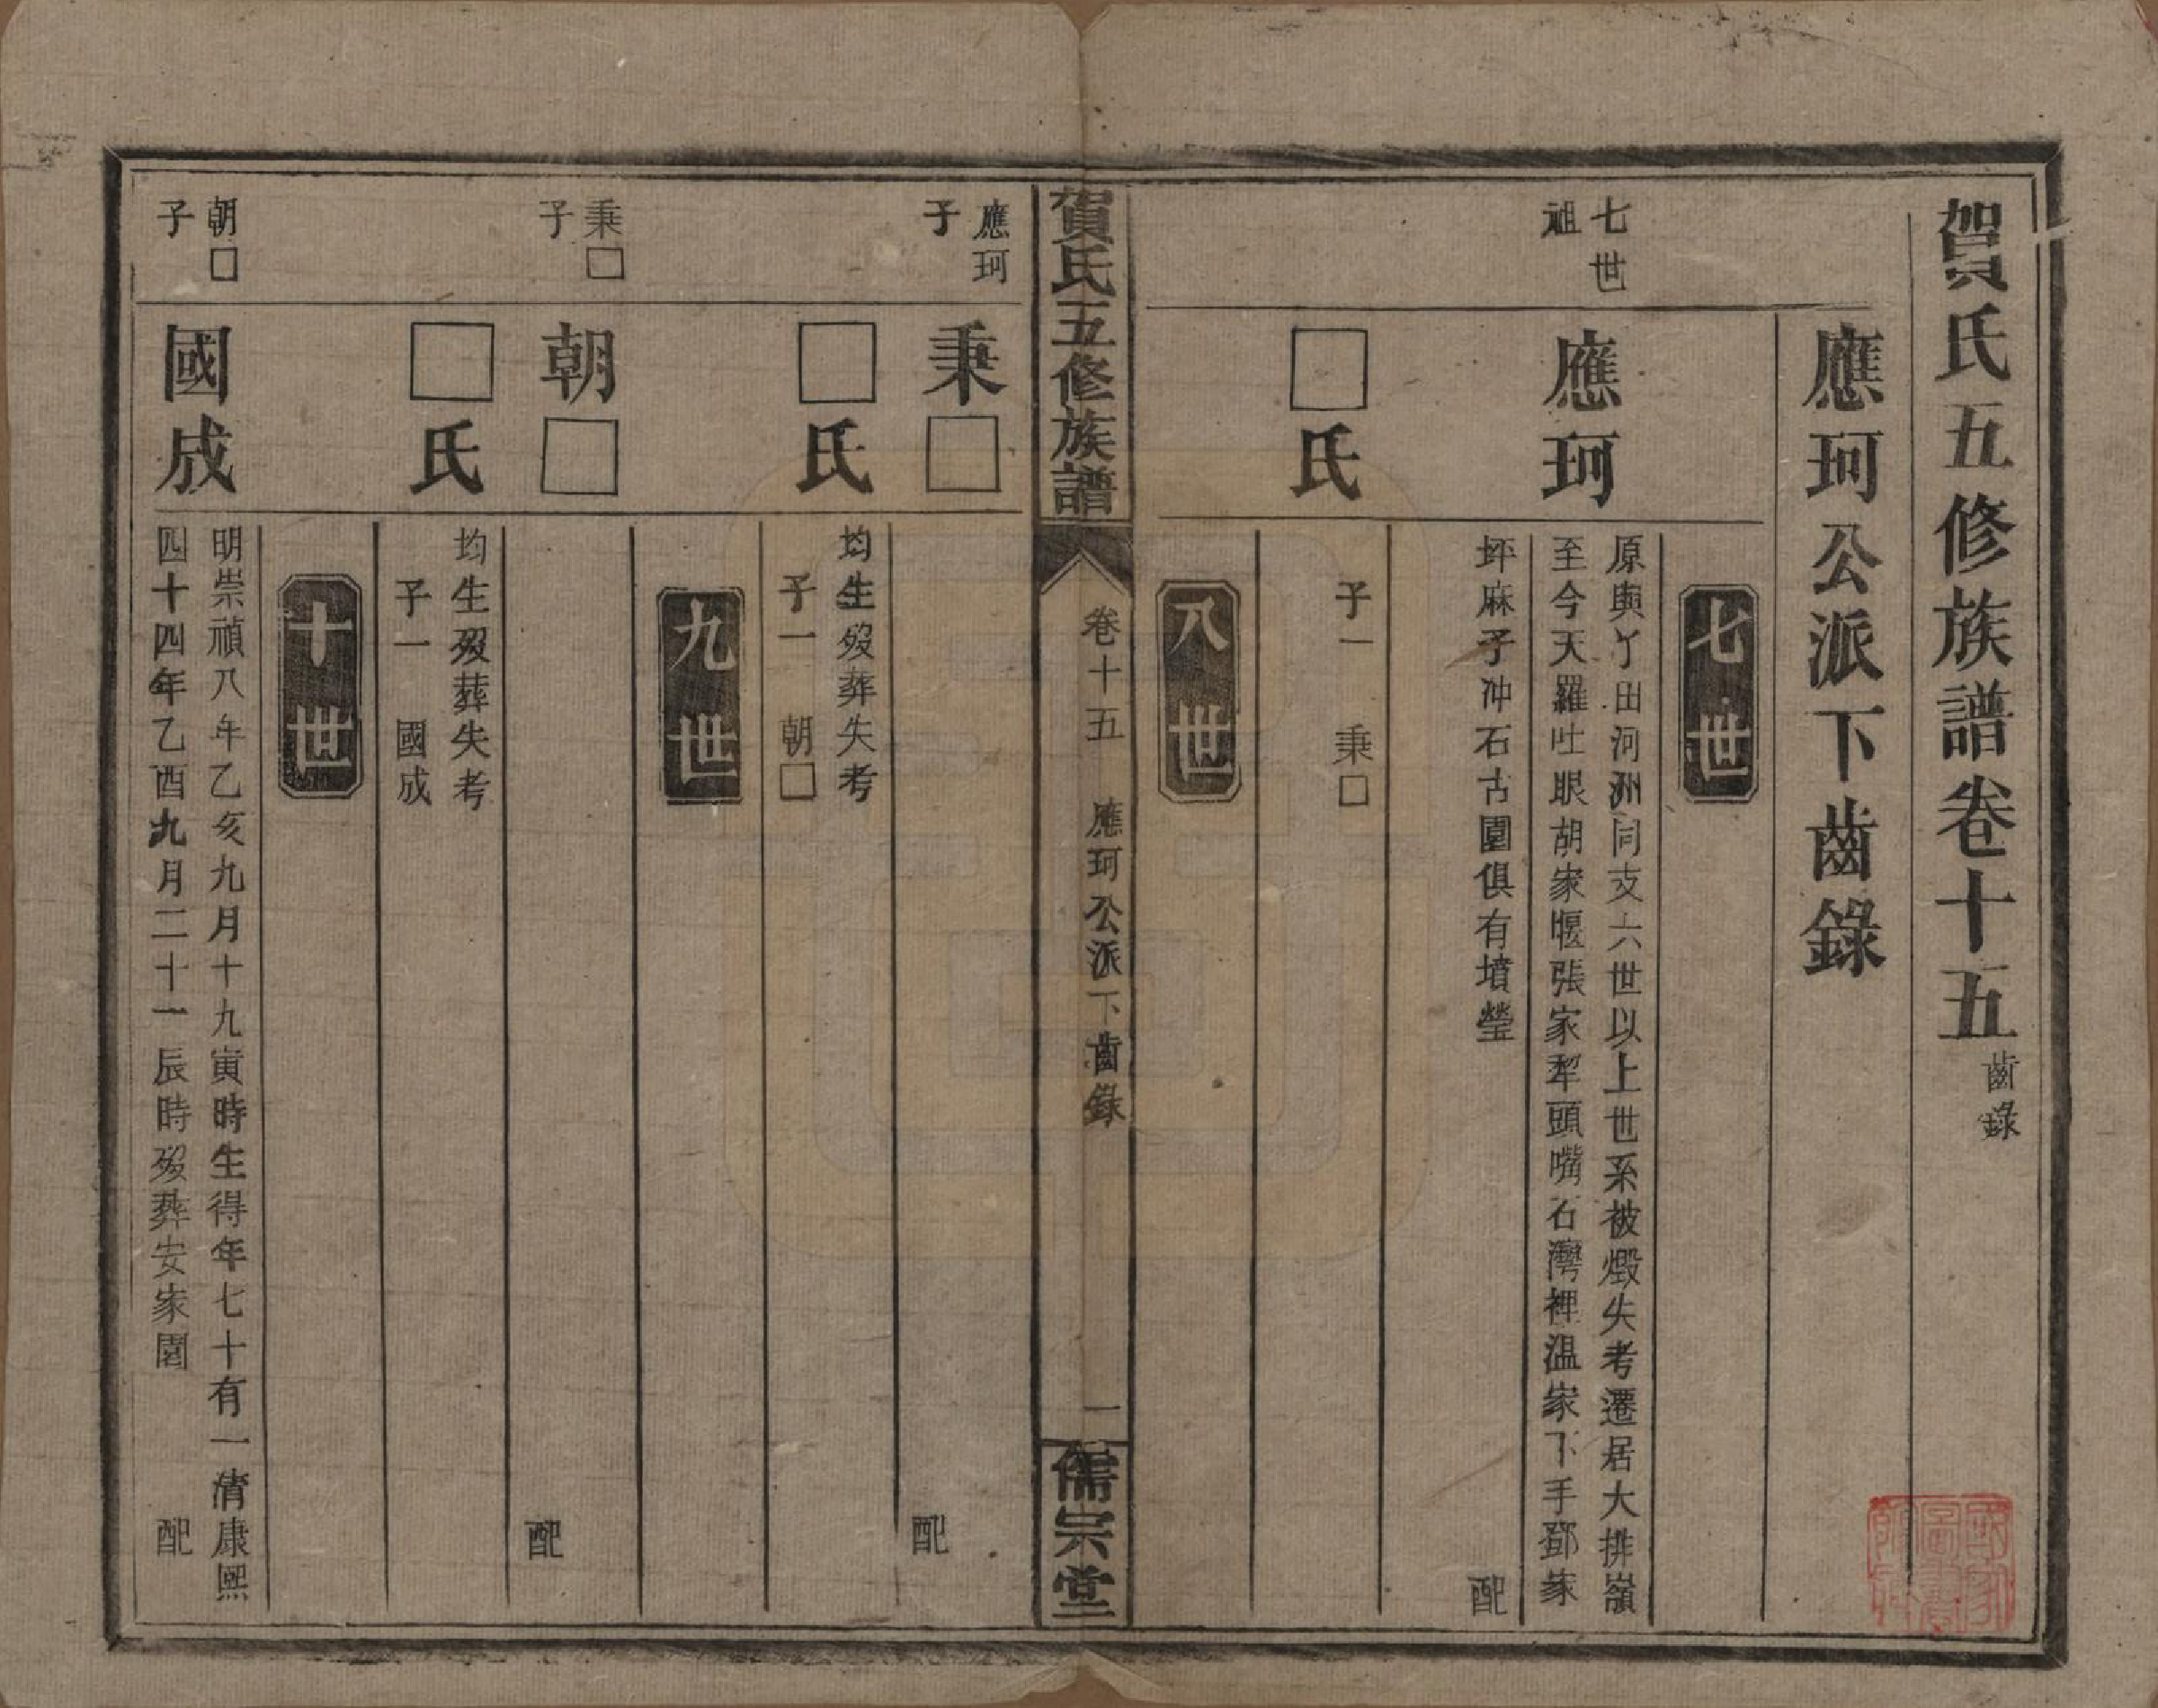 賀氏五修族譜卷十五 齒錄
應珂公派下齒錄
七世
七世
祖
應珂
原與丫田河洲同支六世以上世系被燬失考遷居大排嶺
至今天羅吐眼胡家堰張家犂頭嘴石灣裡溫家下手鄧家
坪麻子冲石古園俱有墳塋 配
□氏
子一 秉□
八世
賀氏五修族譜 卷十五 應珂公派下齒錄 一 儒宗堂
應珂
子
秉□
配
□氏
均生歿葬失考
子一 朝□
九世
秉□
子
朝□
配
□氏
均生歿葬失考
子一 國成
十世
朝□
子
國成
明崇禎八年乙亥九月十九寅時生得年七十有一清康熙
四十四年乙酉九月二十一辰時歿葬安家園 配